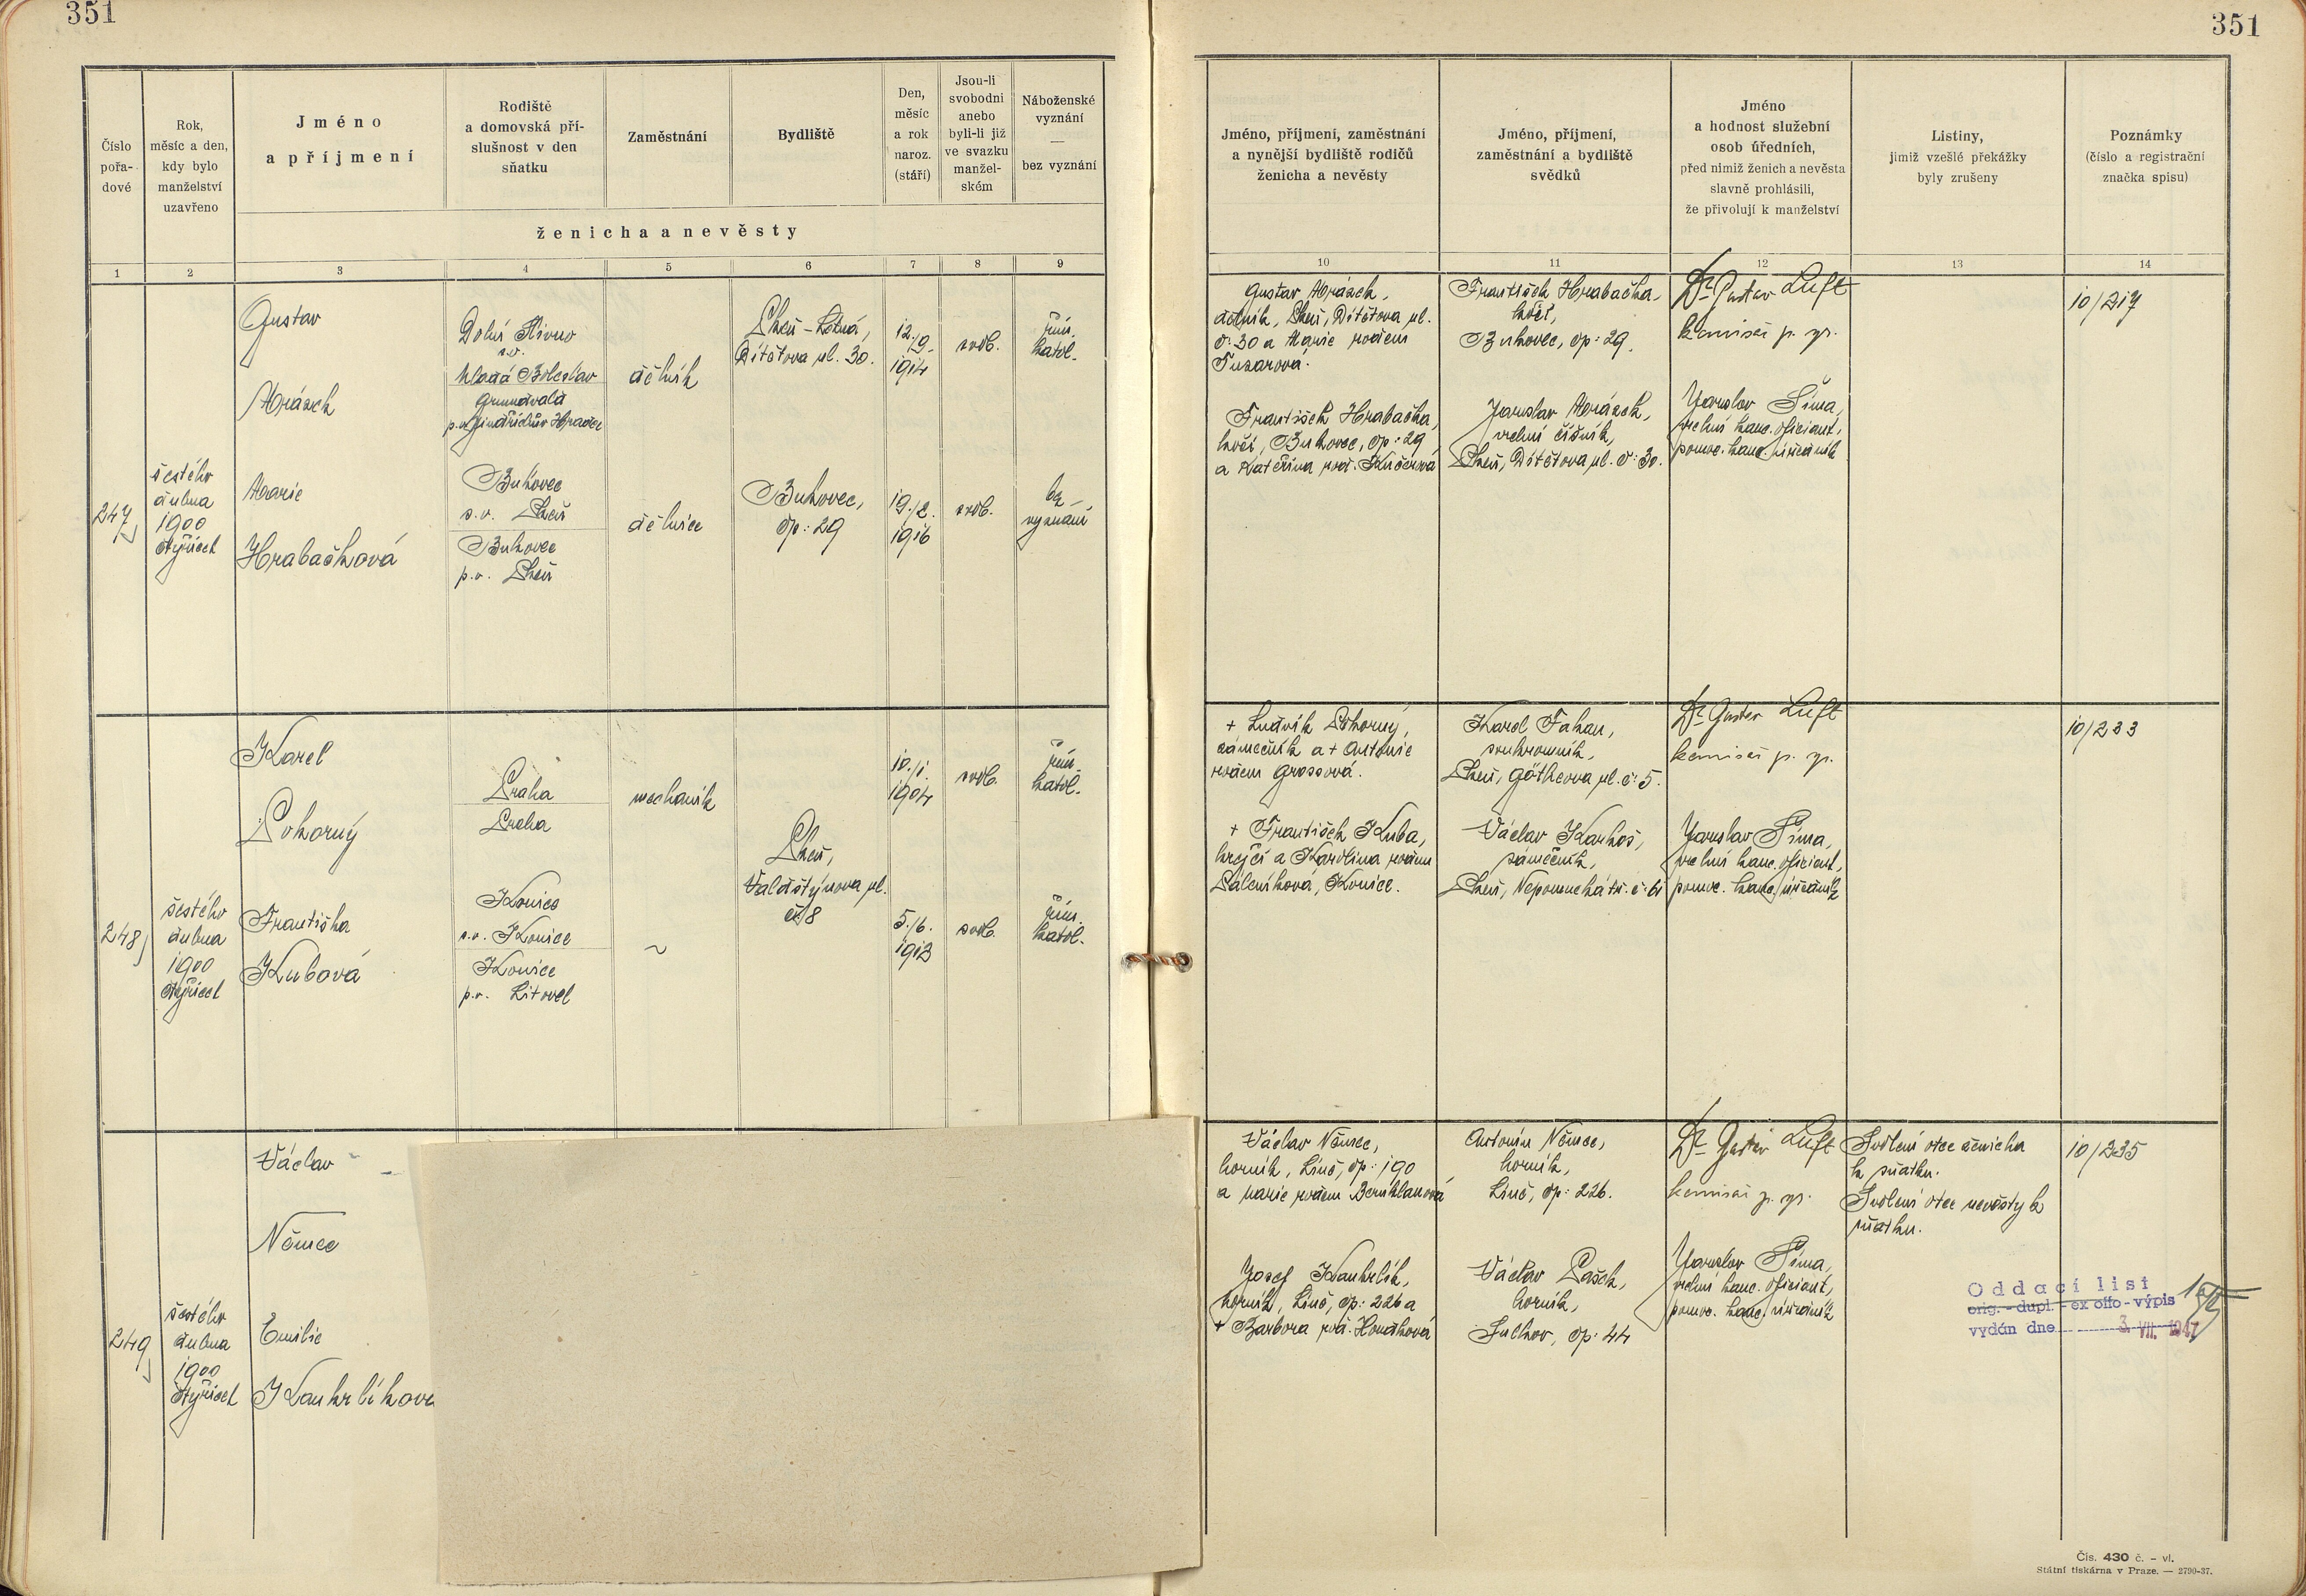 351
351
Číslo
pořa-
dové
Rok,
měsíc a den,
kdy bylo
manželství
uzavřeno
Jméno
a příjmení
Rodiště
a domovská pří-
slušnost v den
sňatku
Zaměstnání
Bydliště
Den,
měsíc
a rok
naroz.
(stáří)
Jsou-li
svobodni
anebo
byli-li již
ve svazku
manžel-
ském
Náboženské
vyznání
—
bez vyznání
ženicha a nevěsty
Jméno, příjmení, zaměstnání
a nynější bydliště rodičů
ženicha a nevěsty
Jméno, příjmení,
zaměstnání a bydliště
svědků
Jméno
a hodnost služební
osob úředních,
před nimiž ženich a nevěsta
slavně prohlásili,
že přivolují k manželství
Listiny,
jimiž vzešlé překážky
byly zrušeny
Poznámky
(číslo a registrační
značka spisu)
1 2 3 4 5 6 7 8 9 10 11 12 13 14
247
šestého
dubna
1900
čtyřicet
Gustav
Mrázek
Marie
Hrabačková
s.o.
Mladá Boleslav
p.o. Jindřichův Hradec
Bukovec
s.o. Plzeň
Bukovec
p.o. Plzeň
dělník
dělnice
Plzeň-Letná,
ul. 30.
Bukovec,
čp: 29
12./9.
1914
19./2.
1916
svob.
svob.
řím.
katol.
bez
vyznání
Gustav Mrázek,
dělník, Plzeň, ul.
č: 30 a Marie rozem
František Hrabačka,
Bukovec, čp: 29
a Kateřina roz. Kučerová
František Hrabačka,
Bukovec, čp: 29.
Jaroslav Mrázek,
vrchní číšník,
Plzeň, ul. č: 30.
Dr Gustav Luft
komisař p. zp.
Jaroslav Šíma,
vrchní kanc. oficiant,
pomoc. kanc. úředník
10/217
248
šestého
dubna
1900
čtyřicet
Karel
Pokorný
Františka
Kubová
Praha
Praha
Konice
s.o. Konice
Konice
p.o. Litovel
mechanik
~
Plzeň,
Valdštýnova ul.
č: 8
10./1.
1904
5./6.
1913
svob.
svob.
řím.
katol.
řím.
katol.
+ Ludvík Pokorný,
zámečník a + Antonie
rozem Grossová.
+ František Kuba,
krejčí a Karolina rozem
Páleníková, Konice.
Karel Fahan,
soukromník,
Plzeň, Götheova ul. č: 5.
Václav Karkoš,
zámečník,
Plzeň, tř. č: 61
Dr Gustav Luft
komisař p. zp.
Jaroslav Šíma,
vrchní kanc. oficiant,
pomoc. kanc. úředník
10/233
249
šestého
dubna
1900
čtyřicet
Václav
Němec
Emilie
Kaukrlíkov
Václav Němec,
horník, Líně, čp: 190
a Marie rozem
Josef Kaukrlík,
horník, Líně, čp: 226 a
+ Barbora roz.
Antonín Němec,
horník,
Líně, čp: 226.
Václav Pašek,
horník,
Sulkov, čp: 44
Dr Gustav Luft
komisař p. zp.
Jaroslav Šíma,
vrchní kanc. oficiant,
pomoc. kanc. úředník
Svolení otce ženicha
k sňatku.
Svolení otce nevěsty k
sňatku.
10/235
Oddací list
orig. - dupl. - ex offo - výpis
vydán dne 3. VII. 1947
Čís. 430 č. – vl.
Státní tiskárna v Praze. — 2790-37.